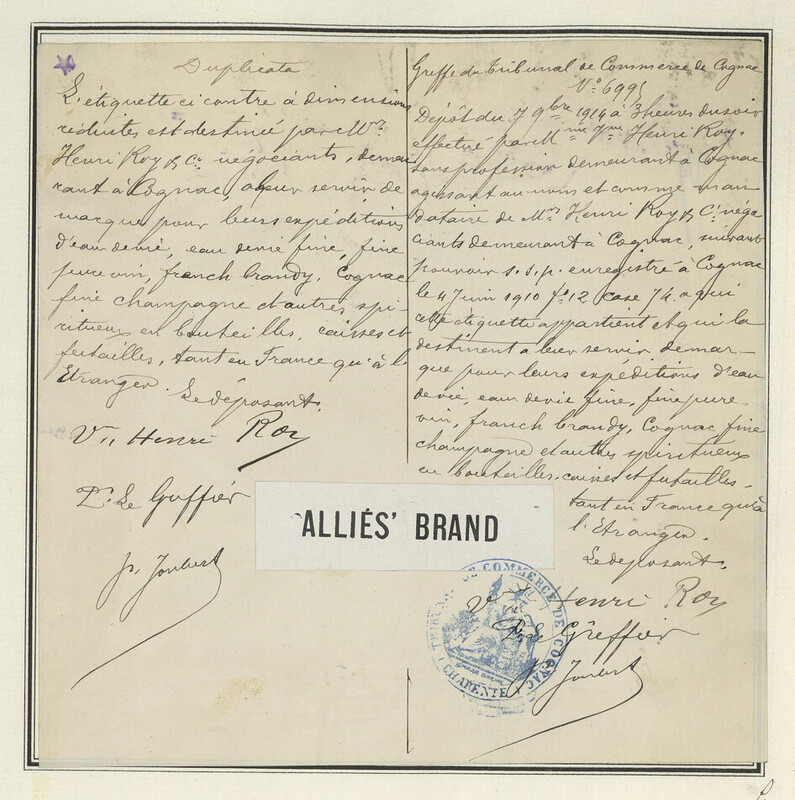 Duplicata
L'étiquette ci contre à dimensions
réduites est destinée par Mrs
Henri Roy & Cie négociants, demeu
rant à Cognac, à leur servir de
marque pour leurs expéditions
d'eau de vie, eau de vie fine, fine
pure vin, french brandy, Cognac
fine champagne et autres spi-
ritueux en bouteilles, caisses et
futailles, tant en France qu'à l'
Etranger. Le déposant,
Vve Henri Roy
Pr Le Greffier
Joubert
Greffe du Tribunal de Commerce de Cognac
No 6995
Dépôt du 7 9bre 1914 à 3 heures du soir
effectué par Mme Vve Henri Roy,
sans profession demeurant à Cognac
agissant au nom et comme man
dataire de Mrs Henri Roy & Cie négo
ciants demeurant à Cognac, suivant
pouvoir s.s.p. enregistré à Cognac
le 4 Juin 1910 fo 12 case 74, a qui
cette étiquette appartient et qui la
destinent à leur servir de mar-
que pour leurs expéditions d'eau
de vie, eau de vie fine, fine pure
vin, french brandy, Cognac fine
champagne et autres spiritueux
en bouteilles, caisses et futailles-
tant en France qu'à
l'Etranger.
Le déposant,
Vve Henri Roy
Pr Le Greffier
Joubert
ALLIÉS' BRAND
TRIBUNAL DE COMMERCE DE COGNAC
(CHARENTE)